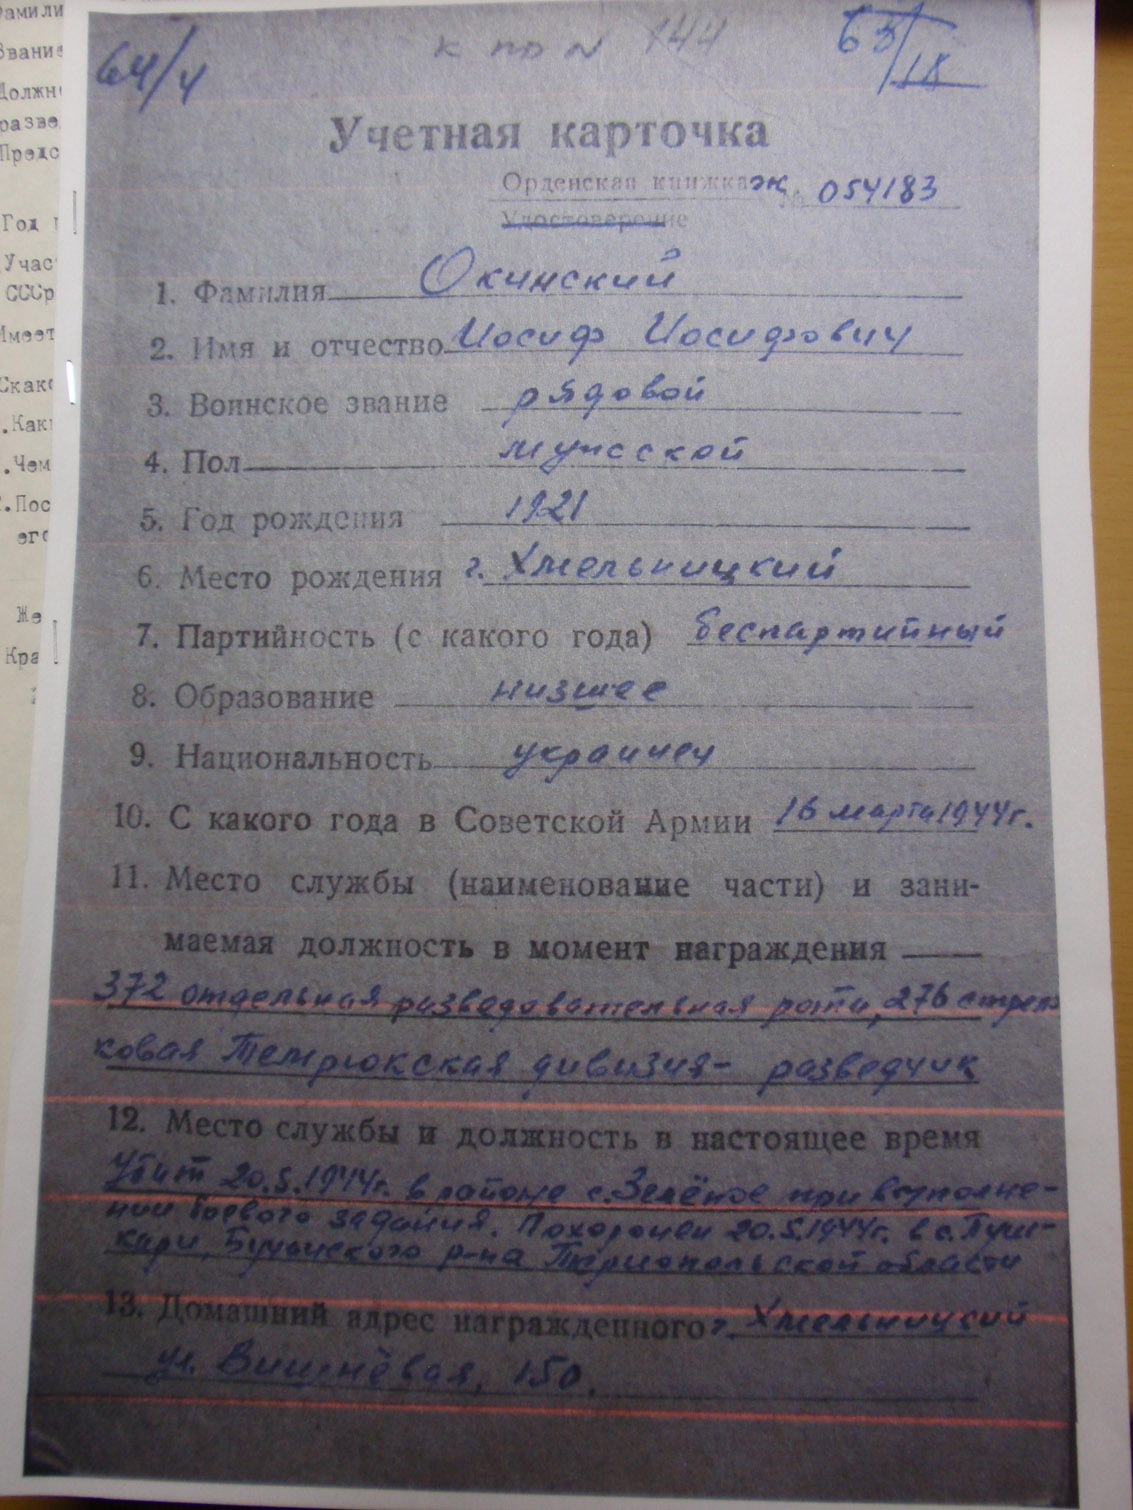 64/4
к пр N 144
63/18
Учетная карточка
Орденская книжка эк № 054183
Удостоверение
1. Фамилия Окинский
2. Имя и отчество Иосиф Иосифович
3. Воинское звание рядовой
4. Пол мужской
5. Год рождения 1921
6. Место рождения г. Хмельницкий
7. Партийность (с какого года) беспартийный
8. Образование низшее
9. Национальность украинец
10. С какого года в Советской Армии 16 марта 1944г.
11. Место службы (наименование части) и зани-
маемая должность в момент награждения
372 отдельная разведовательная рота, 276 стрел-
ковая Темрюкская дивизия - разведчик
12. Место службы и должность в настоящее время
Убит 20.5.1944г. в районе с. Зелёное при выполне-
нии боевого задания. Похоронен 20.5.1944г. в с. Пуш-
кари, Бучачского р-на Тернопольской области
13. Домашний адрес награжденного г. Хмельницкий
ул. Вишнёвая, 150.
Фамили
Звание
Должн
разве
Предс
Год
Учас
СССр
Имеет
Скак
.Как
.Чем
.Пос
его
Же
Кра